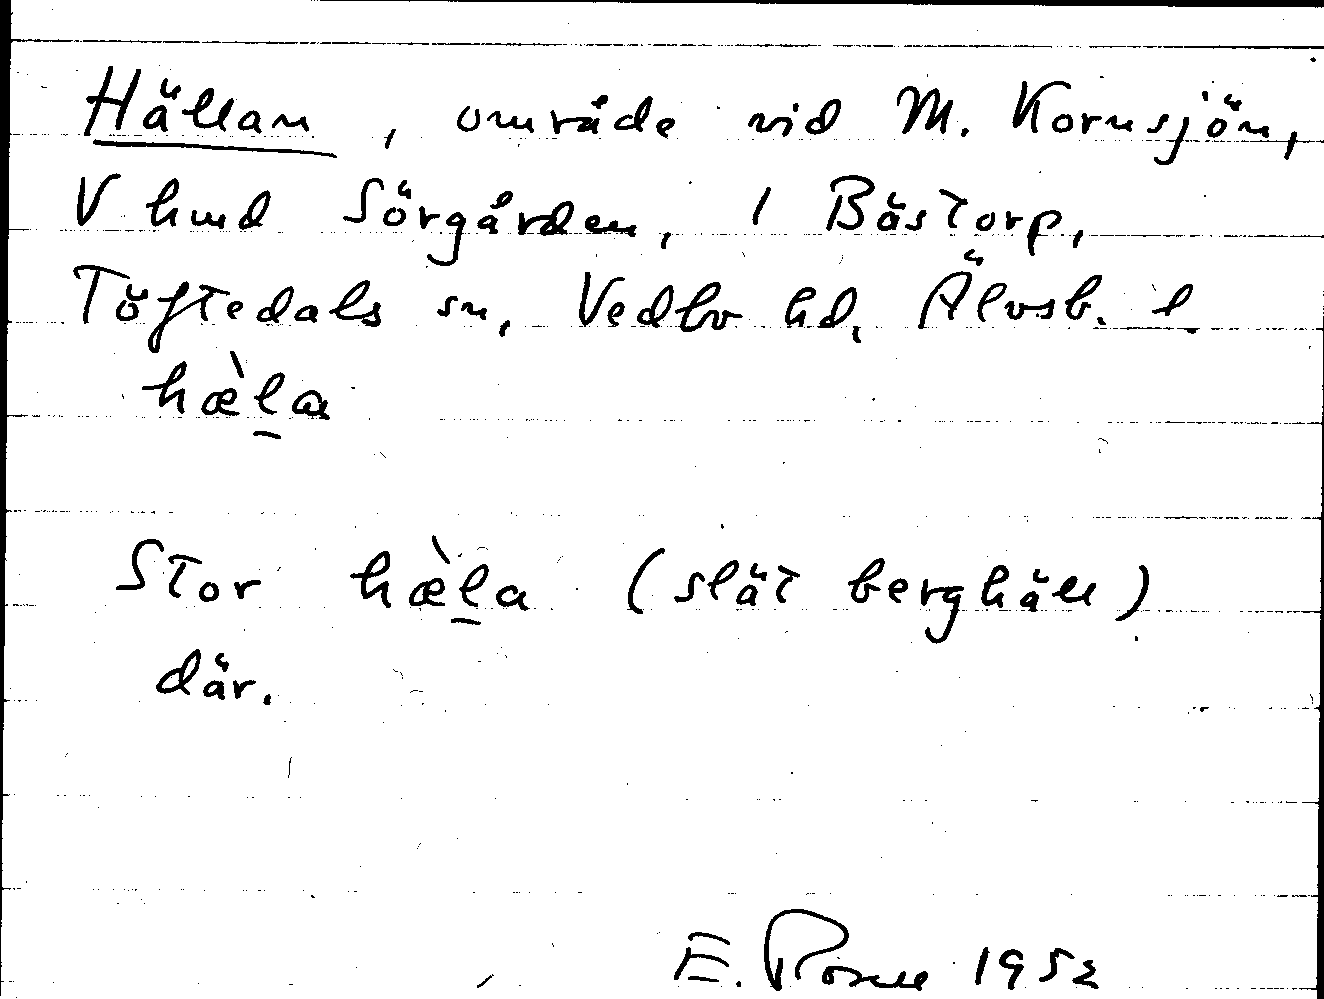 Hällan, område vid M. Kornsjön,
V hmd Sörgården, 1 Bästorp,
Töftedals sn, Vedbo hd, Älvsb. l.
hæ̀l̠a
Stor hæ̀l̠a (slät berghäll)
där.
E. 1952